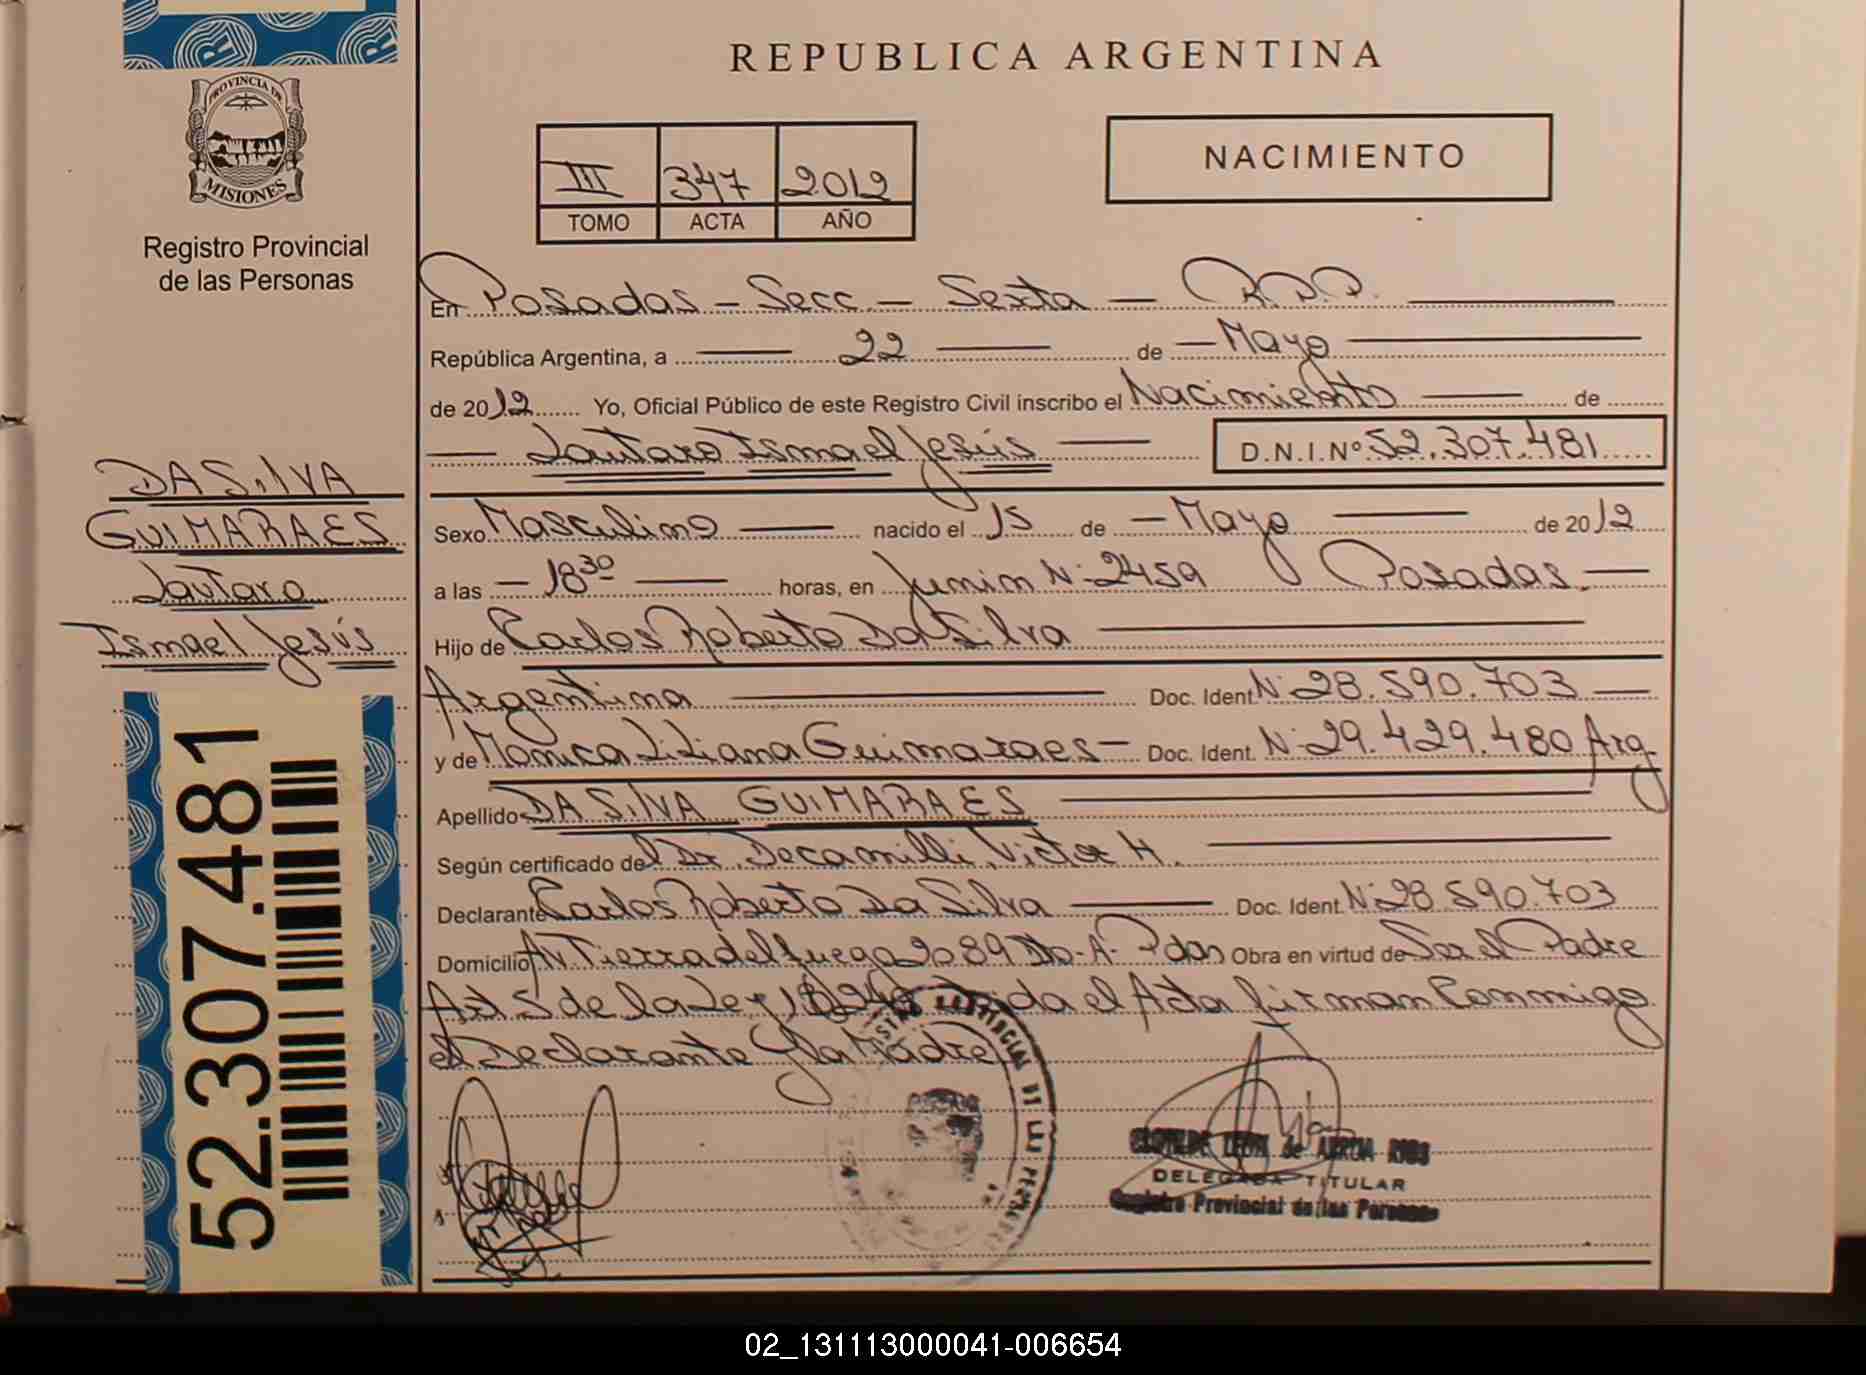 REPUBLICA ARGENTINA
PROVINCIA DE
MISIONES
Registro Provincial
de las Personas
III 347 2012
TOMO ACTA AÑO
NACIMIENTO
En Posadas - Secc - Sexta - R.P.P.
República Argentina, a 22 de Mayo
de 2012 Yo, Oficial Público de este Registro Civil inscribo el Nacimiento de
Lautaro Ismael Jesús D.N.I.Nº 52.307.481
DA SILVA
GUIMARAES
Lautaro
Ismael Jesús
52.307.481
Sexo Masculino nacido el 15 de Mayo de 2012
a las 18 30 horas, en Junin Nº 2459 Posadas.
Hijo de Carlos Roberto Da Silva
Argentina Doc. Ident. Nº 28.590.703
y de Monica Liliana Guimaraes - Doc. Ident. Nº 29.429.480 Arg.
Apellido DA SILVA GUIMARAES
Según certificado del Dr. Decamilli Victor H.
Declarante Carlos Roberto Da Silva Doc. Ident. Nº 28.590.703
Domicilio Av Tierra del fuego 2089 Dto-A- Pdas Obra en virtud de Ser el Padre
Art 5 de la Ley 18248 el Acta firman Conmigo
el Declarante y la Madre
CLOTILDE LEON de
DELEGADA TITULAR
Registro Provincial de las Personas
02_131113000041-006654